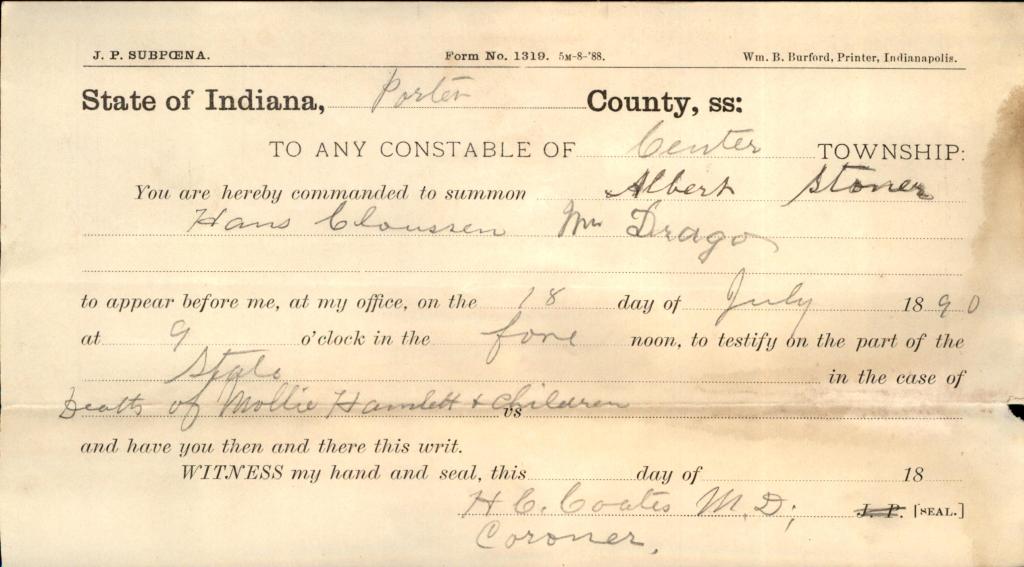 J. P. SUBPŒNA. Form No. 1319. 5M-8-'88. Wm. B. Burford, Printer, Indianapolis.
State of Indiana, Porter County, ss:
TO ANY CONSTABLE OF Center TOWNSHIP:
You are hereby commanded to summon Albert Stoner
Hans Claussen Wm Drago
to appear before me, at my office, on the 18 day of July 1890
at 9 o'clock in the fore noon, to testify on the part of the
State in the case of
Death of Mollie Hamlett & Children vs
and have you then and there this writ.
WITNESS my hand and seal, this day of 18
H. C. Coates M. D; J. P. [SEAL.]
Coroner.